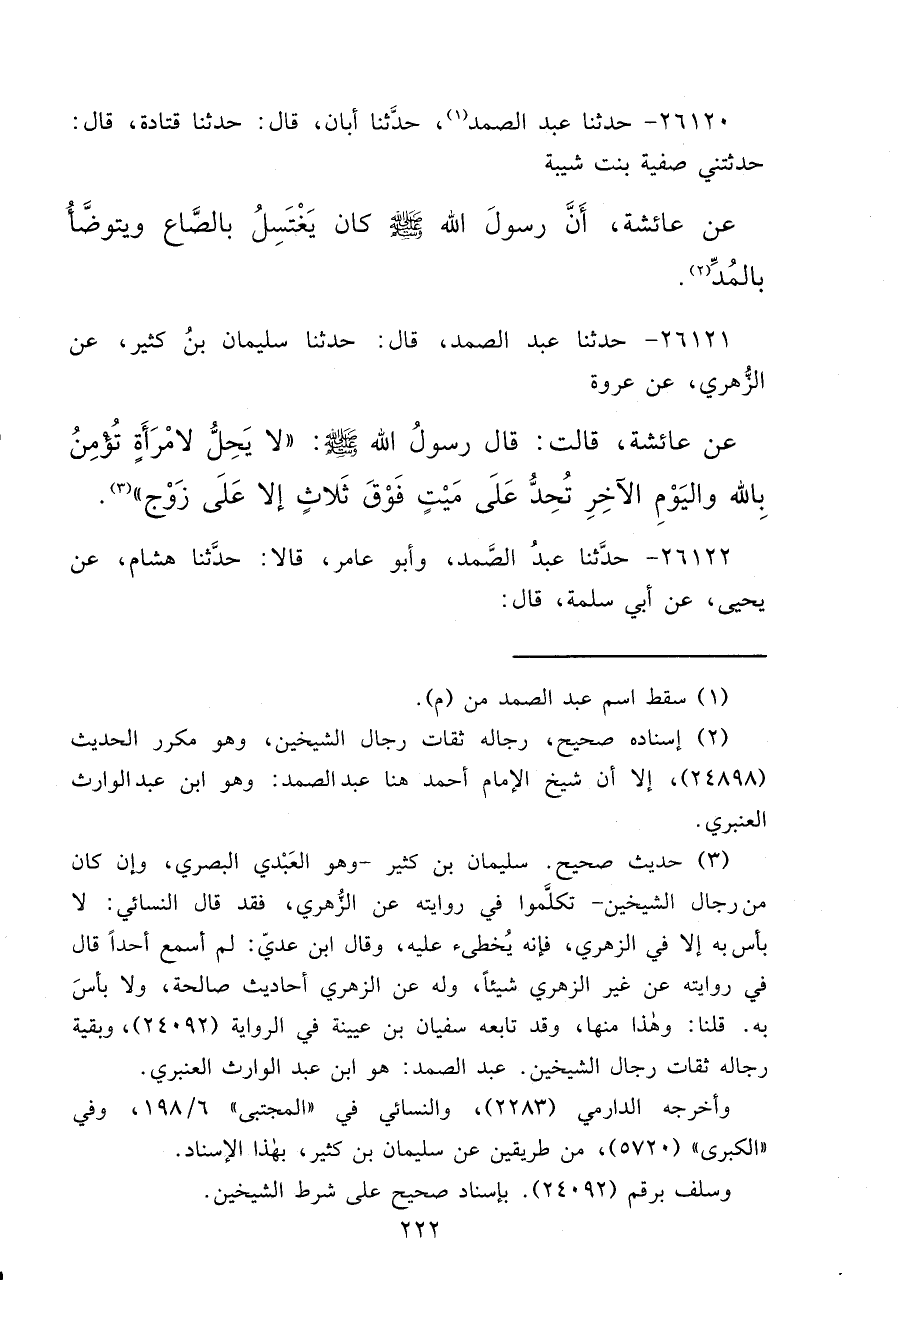 ٢٦١٢٠- حدثنا عبد الصمد(١)، حدَّثنا أبان، قال: حدثنا قتادة، قال:
حدثتني صفية بنت شيبة
عن عائشة، أَنَّ رسولَ الله ﷺ كان يَغْتَسِلُ بالصَّاع ويتوضَّأُ
بالمُدِّ(٢).
٢٦١٢١- حدثنا عبد الصمد، قال: حدثنا سليمان بنُ كثير، عن
الزُّهري، عن عروة
عن عائشة، قالت: قال رسولُ الله ﷺ: «لا يَحِلُّ لامْرَأَةٍ تُؤْمِنُ
بِالله واليَوْمِ الآخِرِ تُحِدُّ عَلَى مَيْتٍ فَوْقَ ثَلاثٍ إلا عَلَى زَوْجٍ»(٣).
٢٦١٢٢- حدَّثنا عبدُ الصَّمد، وأبو عامر، قالا: حدَّثنا هشام، عن
يحيى، عن أبي سلمة، قال:
(١) سقط اسم عبد الصمد من (م).
(٢) إسناده صحيح، رجاله ثقات رجال الشيخين، وهو مكرر الحديث
(٢٤٨٩٨)، إلا أن شيخ الإمام أحمد هنا عبد الصمد: وهو ابن عبد الوارث
العنبري.
(٣) حديث صحيح. سليمان بن كثير -وهو العَبْدي البصري، وإن كان
من رجال الشيخين- تكلَّموا في روايته عن الزُّهري، فقد قال النسائي: لا
بأس به إلا في الزهري، فإنه يُخطىء عليه، وقال ابن عديّ: لم أسمع أحداً قال
في روايته عن غير الزهري شيئاً، وله عن الزهري أحاديث صالحة، ولا بأسَ
به. قلنا: وهٰذا منها، وقد تابعه سفيان بن عيينة في الرواية (٢٤٠٩٢)، وبقية
رجاله ثقات رجال الشيخين. عبد الصمد: هو ابن عبد الوارث العنبري.
وأخرجه الدارمي (٢٢٨٣)، والنسائي في «المجتبى» ١٩٨/٦، وفي
«الكبرى» (٥٧٢٠)، من طريقين عن سليمان بن كثير، بهٰذا الإسناد.
وسلف برقم (٢٤٠٩٢). بإسناد صحيح على شرط الشيخين.
٢٢٢